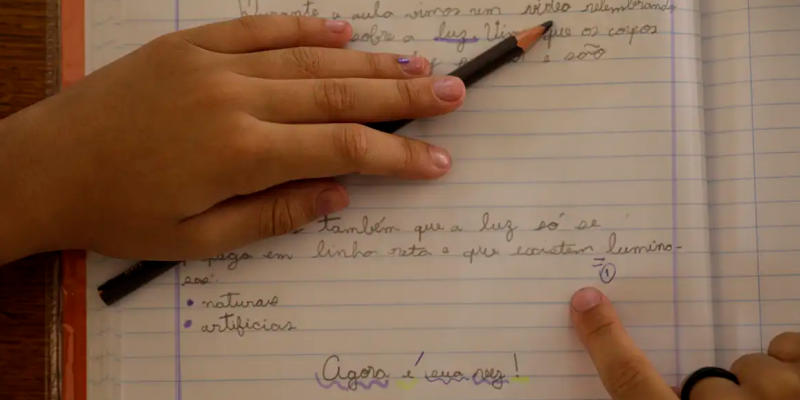 Durante a aula vimos um vídeo relembrando
sobre a luz. Vim que os corpos
e são
também que a luz só se
em linha reta e que existem lumino-
sos:
=
①
• naturais
• artificias
Agora é sua vez!